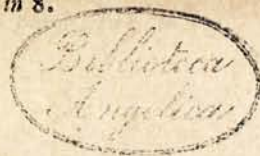 in 8.
Biblioteca
Angelica